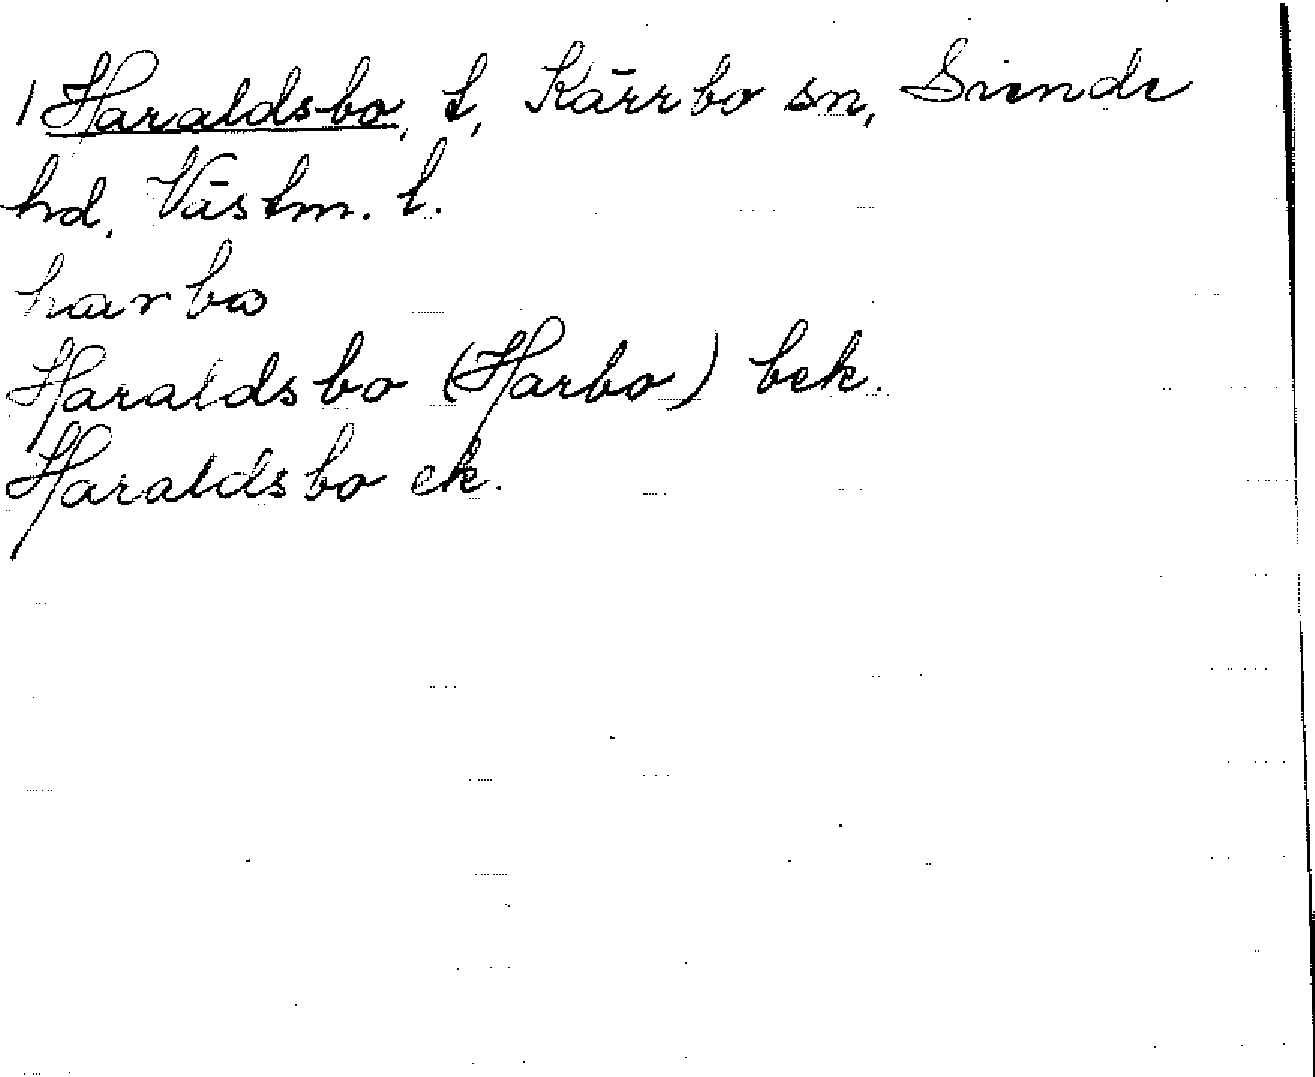 1 Haraldsbo, t, Kärrbo sn, Siende
hd, Västm. l.
harbo
Haraldsbo (Harbo) bek.
Haraldsbo ek.